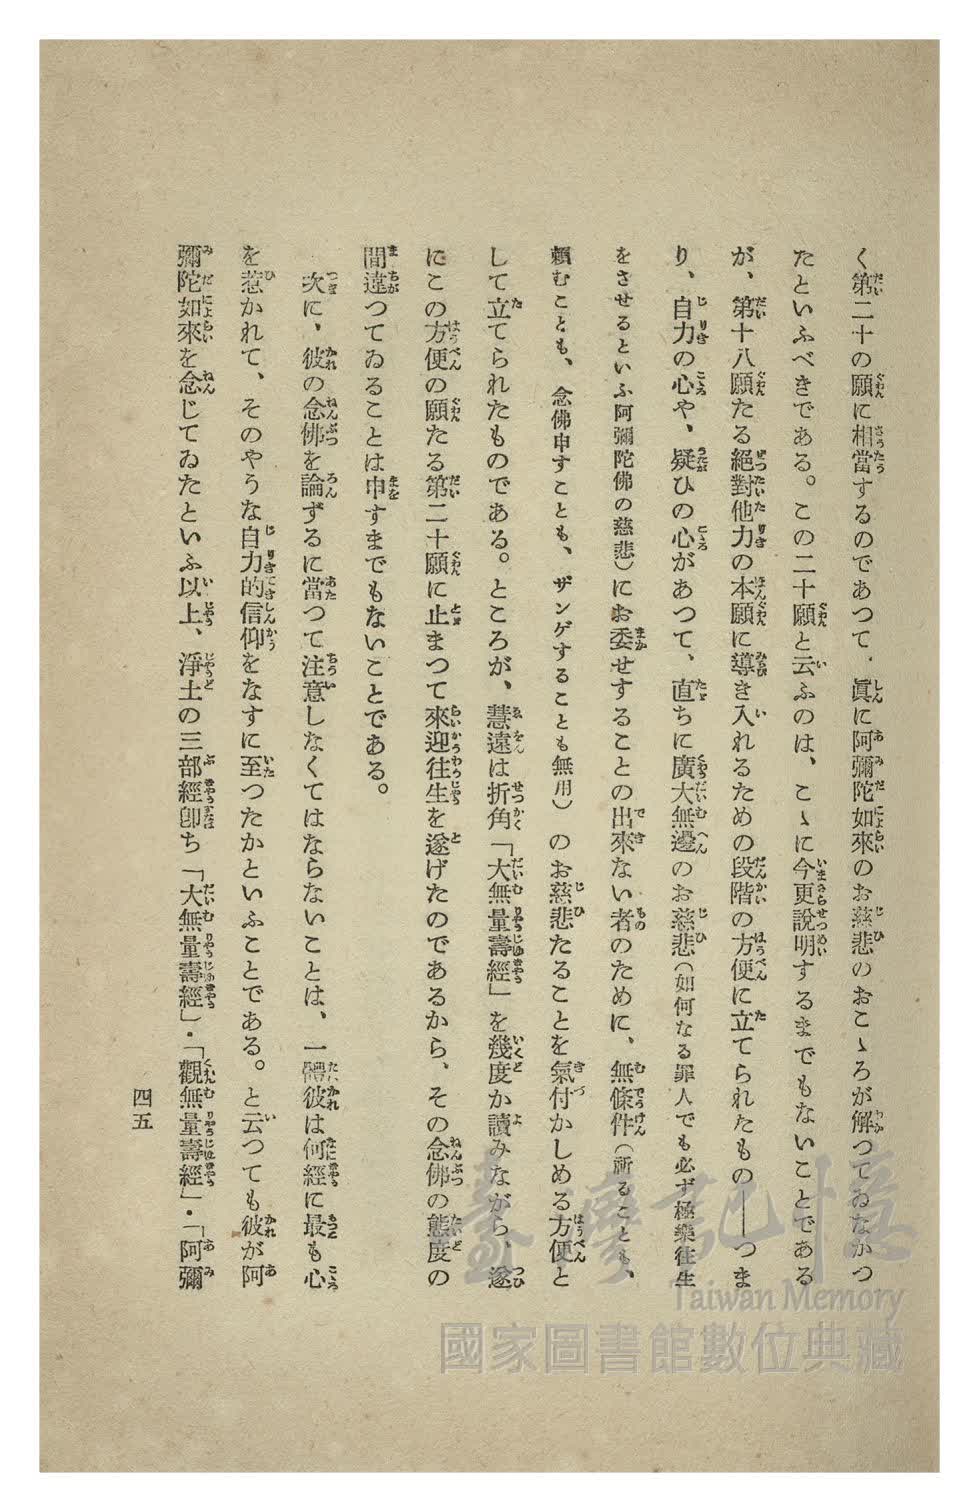 く第二十の願に相當するのであつて、眞に阿彌陀如來のお慈悲のおこゝろが解つてゐなかつ
たといふべきである。この二十願と云ふのは、こゝに今更說明するまでもないことである
が、第十八願たる絕對他力の本願に導き入れるための段階の方便に立てられたもの――つま
り、自力の心や、疑ひの心があつて、直ちに廣大無邊のお慈悲(如何なる罪人でも必ず極樂往生
をさせるといふ阿彌陀佛の慈悲)にお委せすることの出來ない者のために、無條件(祈ることも、
賴むことも、念佛申すことも、ザンゲすることも無用)のお慈悲たることを氣付かしめる方便と
して立てられたものである。ところが、慧遠は折角「大無量壽經」を幾度か讀みながら、遂
にこの方便の願たる第二十願に止まつて來迎往生を遂げたのであるから、その念佛の態度の
間違つてゐることは申すまでもないことである。
次に、彼の念佛を論ずるに當つて注意しなくてはならないことは、一體彼は何經に最も心
を惹かれて、そのやうな自力的信仰をなすに至つたかといふことである。と云つても彼が阿
彌陀如來を念じてゐたといふ以上、淨土の三部經卽ち「大無量壽經」・「觀無量壽經」・「阿彌
四五
臺灣記憶
Taiwan Memory
國家圖書館數位典藏